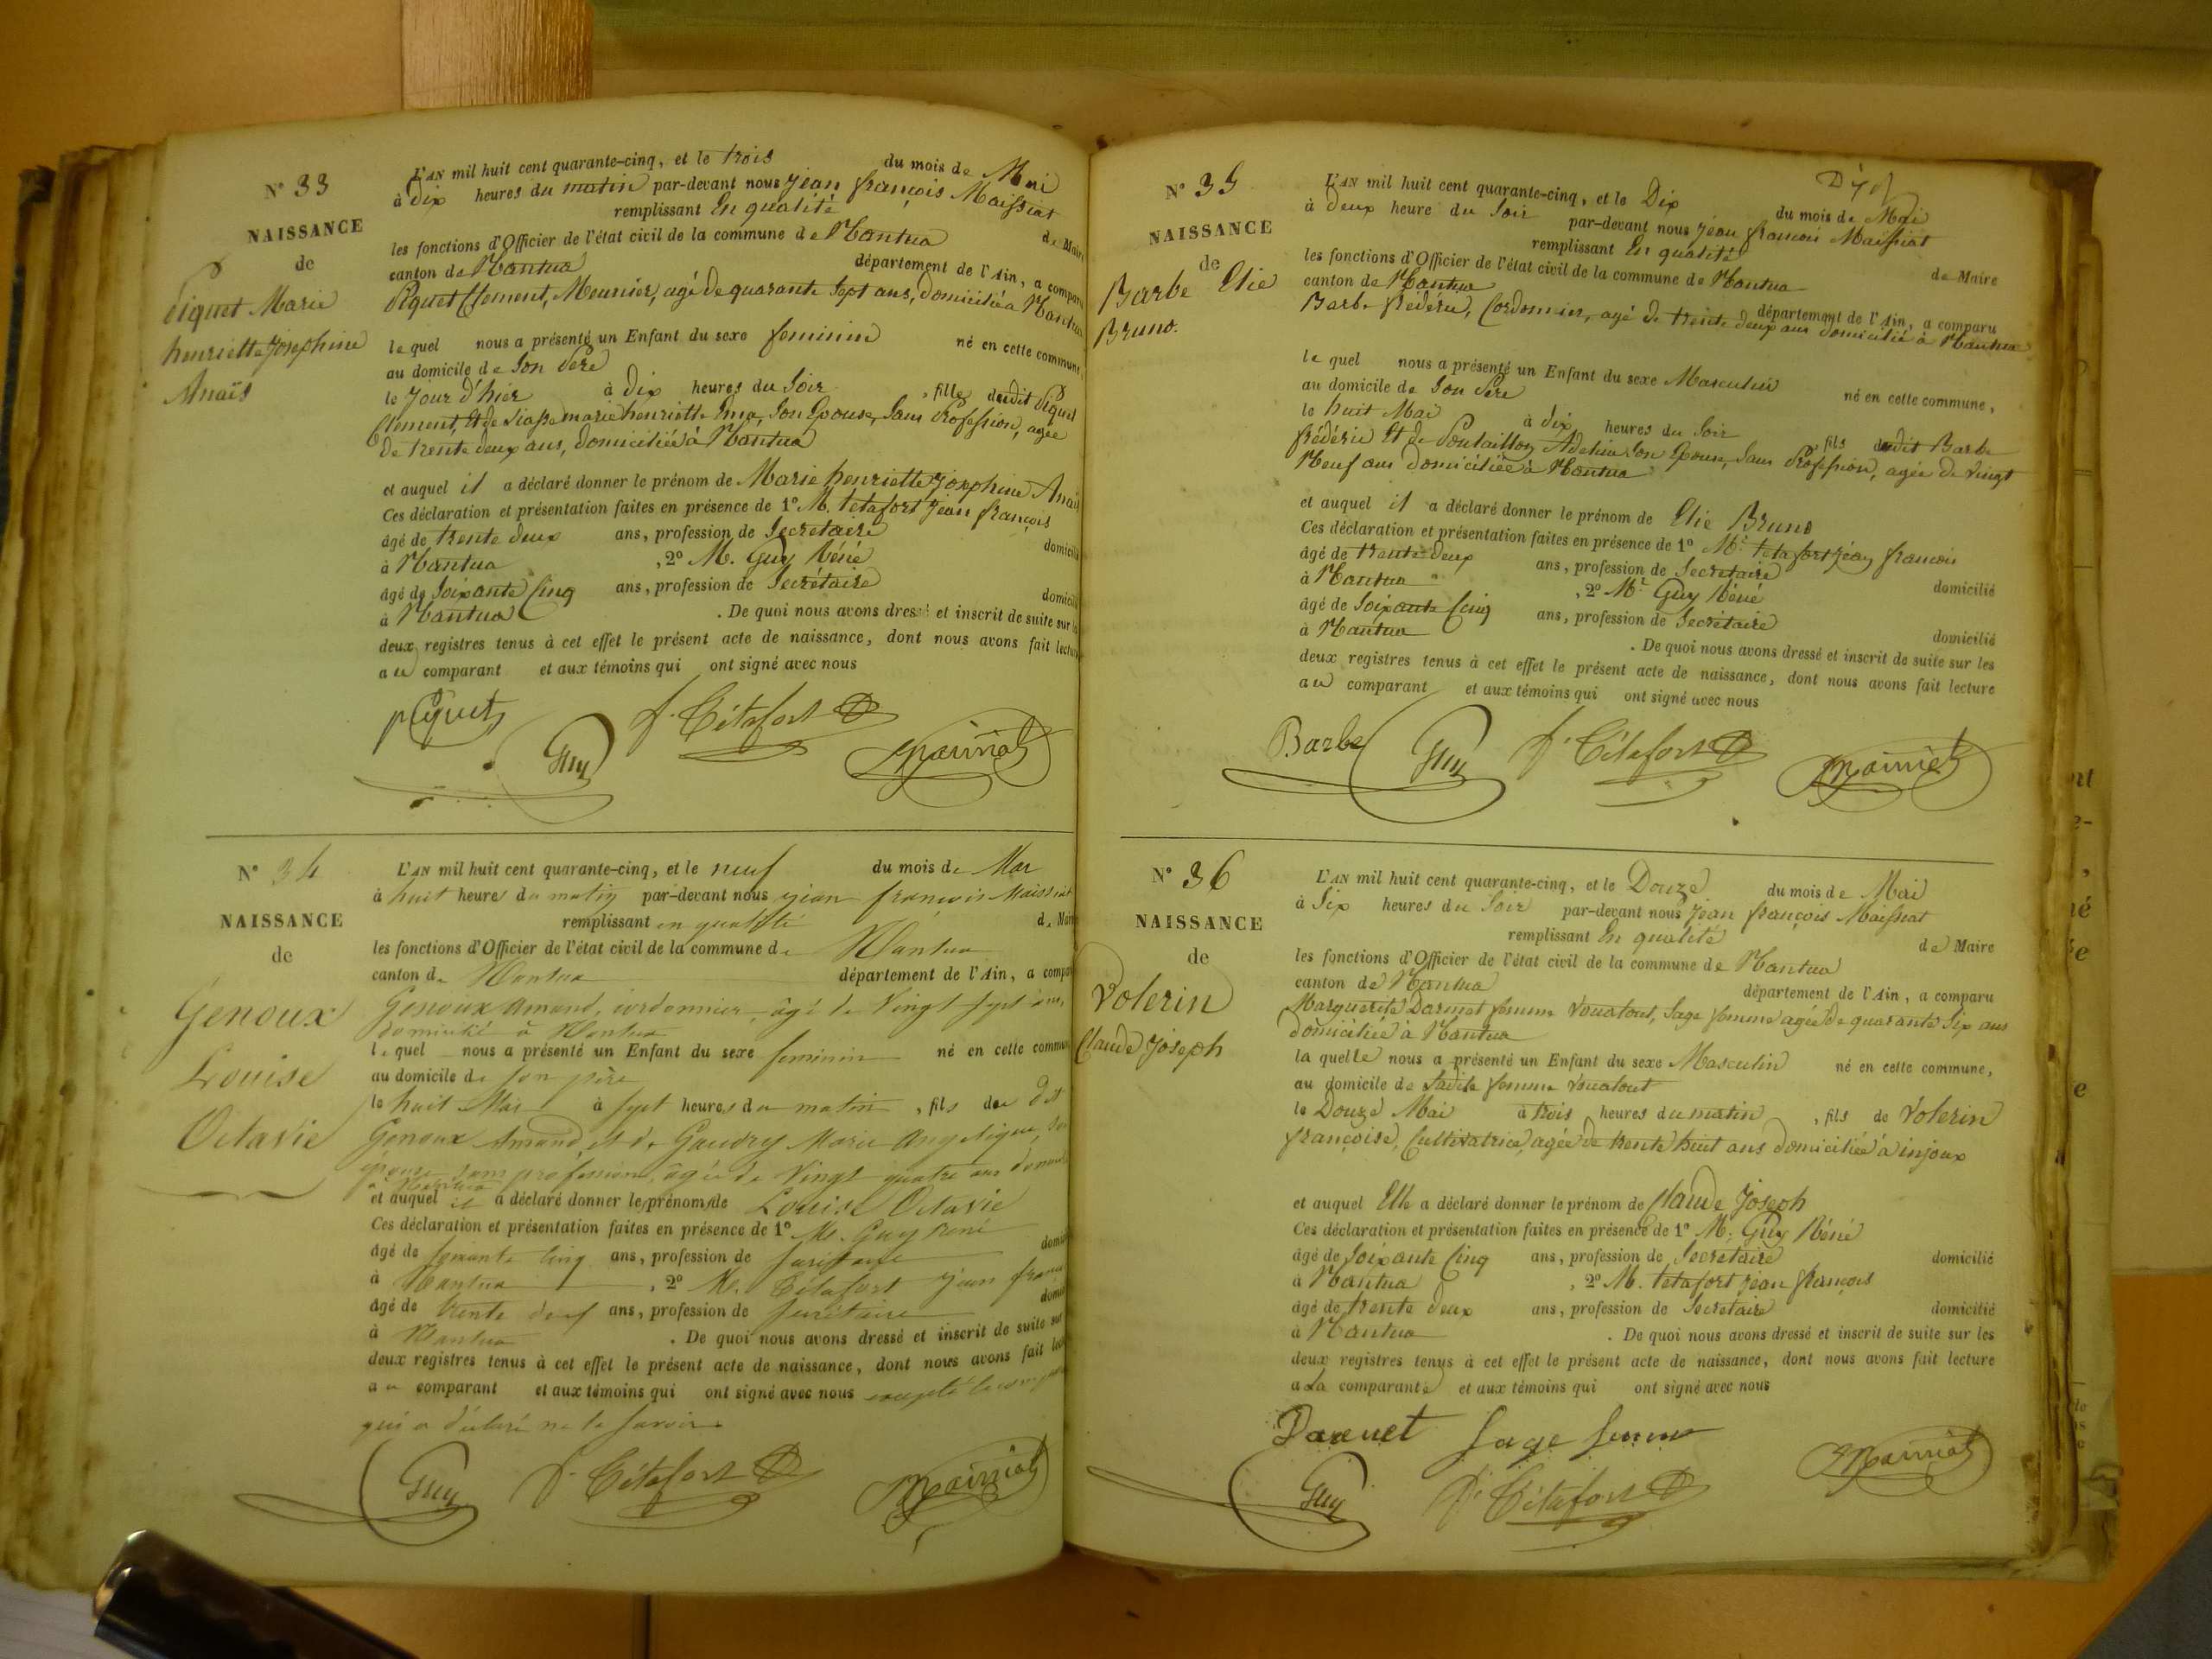 N° 33
NAISSANCE
de
Piquet Marie
henriette Josephine
Anaïs
L'AN mil huit cent quarante-cinq, et le trois du mois de Mai
à dix heures du matin par-devant nous Jean françois Maissiat
remplissant En qualité de Maire
les fonctions d'Officier de l'état civil de la commune de Nantua
canton de Nantua département de l'Ain, a comparu
Piquet Clement, Meunier, agé de quarante Sept ans, domicilié a Nantua
lequel nous a présenté un Enfant du sexe feminin né en cette commune,
au domicile de Son Pere
le Jour d'hier à dix heures du Soir, fille dudit Piquet
Clement, Et de marie henriette Ema, Son Epouse, Sans Profession, agée
De trente deux ans, domiciliée à Nantua
et auquel il a déclaré donner le prénom de Marie henriette Josephine Anaïs
Ces déclaration et présentation faites en présence de 1° M. tetafort Jean françois
âgé de trente deux ans, profession de Secretaire domicilié
à Nantua, 2° M. Guy Réné
âgé de Soixante Cinq ans, profession de Secrétaire domicilié
à Nantua. De quoi nous avons dressé et inscrit de suite sur les
deux registres tenus à cet effet le présent acte de naissance, dont nous avons fait lecture
au comparant et aux témoins qui ont signé avec nous
piquet
Guy J. Tétafort Maissiat
N° 34
NAISSANCE
de
Genoux
Louise
Octavie
L'AN mil huit cent quarante-cinq, et le neuf du mois de Mai
à huit heures du matin par-devant nous jean françois Maissiat
remplissant en qualité de Maire
les fonctions d'Officier de l'état civil de la commune de Nantua
canton de Nantua département de l'Ain, a comparu
Genoux Amand, cordonnier, âgé de Vingt sept ans,
domicilié à Nantua
lequel nous a présenté un Enfant du sexe feminin né en cette commune
au domicile de son père
le huit Mai à sept heures du matin, fils du dit
Genoux Amand, et de Gaudry Marie Angelique, son
épouse sans profession, âgée de Vingt quatre ans domiciliée
à Nantua
et auquel il a déclaré donner le prénom de Louise Octavie
Ces déclaration et présentation faites en présence de 1° Mr. Guy René
âgé de soixante cinq ans, profession de secrétaire domicilié
à Nantua, 2° M. Tétafort jean françois
âgé de trente deux ans, profession de secrétaire domicilié
à Nantua. De quoi nous avons dressé et inscrit de suite sur
deux registres tenus à cet effet le présent acte de naissance, dont nous avons fait lecture
au comparant et aux témoins qui ont signé avec nous excepté le comparant
qui a déclaré ne le savoir.
Guy J. Tétafort Maissiat
N° 35
NAISSANCE
de
Barbe Elie
Bruno.
L'AN mil huit cent quarante-cinq, et le Dix du mois de Mai
à deux heure du Soir par-devant nous Jean françois Maissiat
remplissant En qualité de Maire
les fonctions d'Officier de l'état civil de la commune de Nantua
canton de Nantua département de l'Ain, a comparu
Barbe frédéric, Cordonnier, agé de trente deux ans domicilié à Nantua
le quel nous a présenté un Enfant du sexe Masculin né en cette commune,
au domicile de Son Pere
le huit Mai à dix heures du Soir, fils dudit Barbe
frédéric Et de Poutaillon Adeline Son Epouse, Sans Profession, agée de Vingt
Neuf ans domiciliée à Nantua
et auquel il a déclaré donner le prénom de Elie Bruno
Ces déclaration et présentation faites en présence de 1° Mr. tetafort jean francois
âgé de trente deux ans, profession de Secretaire domicilié
à Nantua, 2° Mr. Guy Réné
âgé de Soixante Cinq ans, profession de Secretaire domicilié
à Nantua. De quoi nous avons dressé et inscrit de suite sur les
deux registres tenus à cet effet le présent acte de naissance, dont nous avons fait lecture
au comparant et aux témoins qui ont signé avec nous
Barbe Guy J. Tétafort Maissiat
N° 36
NAISSANCE
de
Volerin
Claude Joseph
L'AN mil huit cent quarante-cinq, et le Douze du mois de Mai
à Six heures du Soir par-devant nous Jean françois Maissiat
remplissant En qualité de Maire
les fonctions d'Officier de l'état civil de la commune de Nantua
canton de Nantua département de l'Ain, a comparu
Marguerite Darmet femme Vouatout, Sage femme agée de quarante Six ans
domiciliée à Nantua
la quelle nous a présenté un Enfant du sexe Masculin né en cette commune,
au domicile de Ladite femme Vouatout
le Douze Mai à trois heures du matin, fils de Volerin
françoise, Cultivatrice, agée de trente huit ans domiciliée à injoux
et auquel Elle a déclaré donner le prénom de Claude Joseph
Ces déclaration et présentation faites en présence de 1° M. Guy Réné
âgé de Soixante Cinq ans, profession de Secretaire domicilié
à Nantua, 2° M. tetafort jean françois
âgé de trente deux ans, profession de Secretaire domicilié
à Nantua. De quoi nous avons dressé et inscrit de suite sur les
deux registres tenus à cet effet le présent acte de naissance, dont nous avons fait lecture
a La comparante et aux témoins qui ont signé avec nous
Darmet Sage femme
Guy J. Tétafort Maissiat